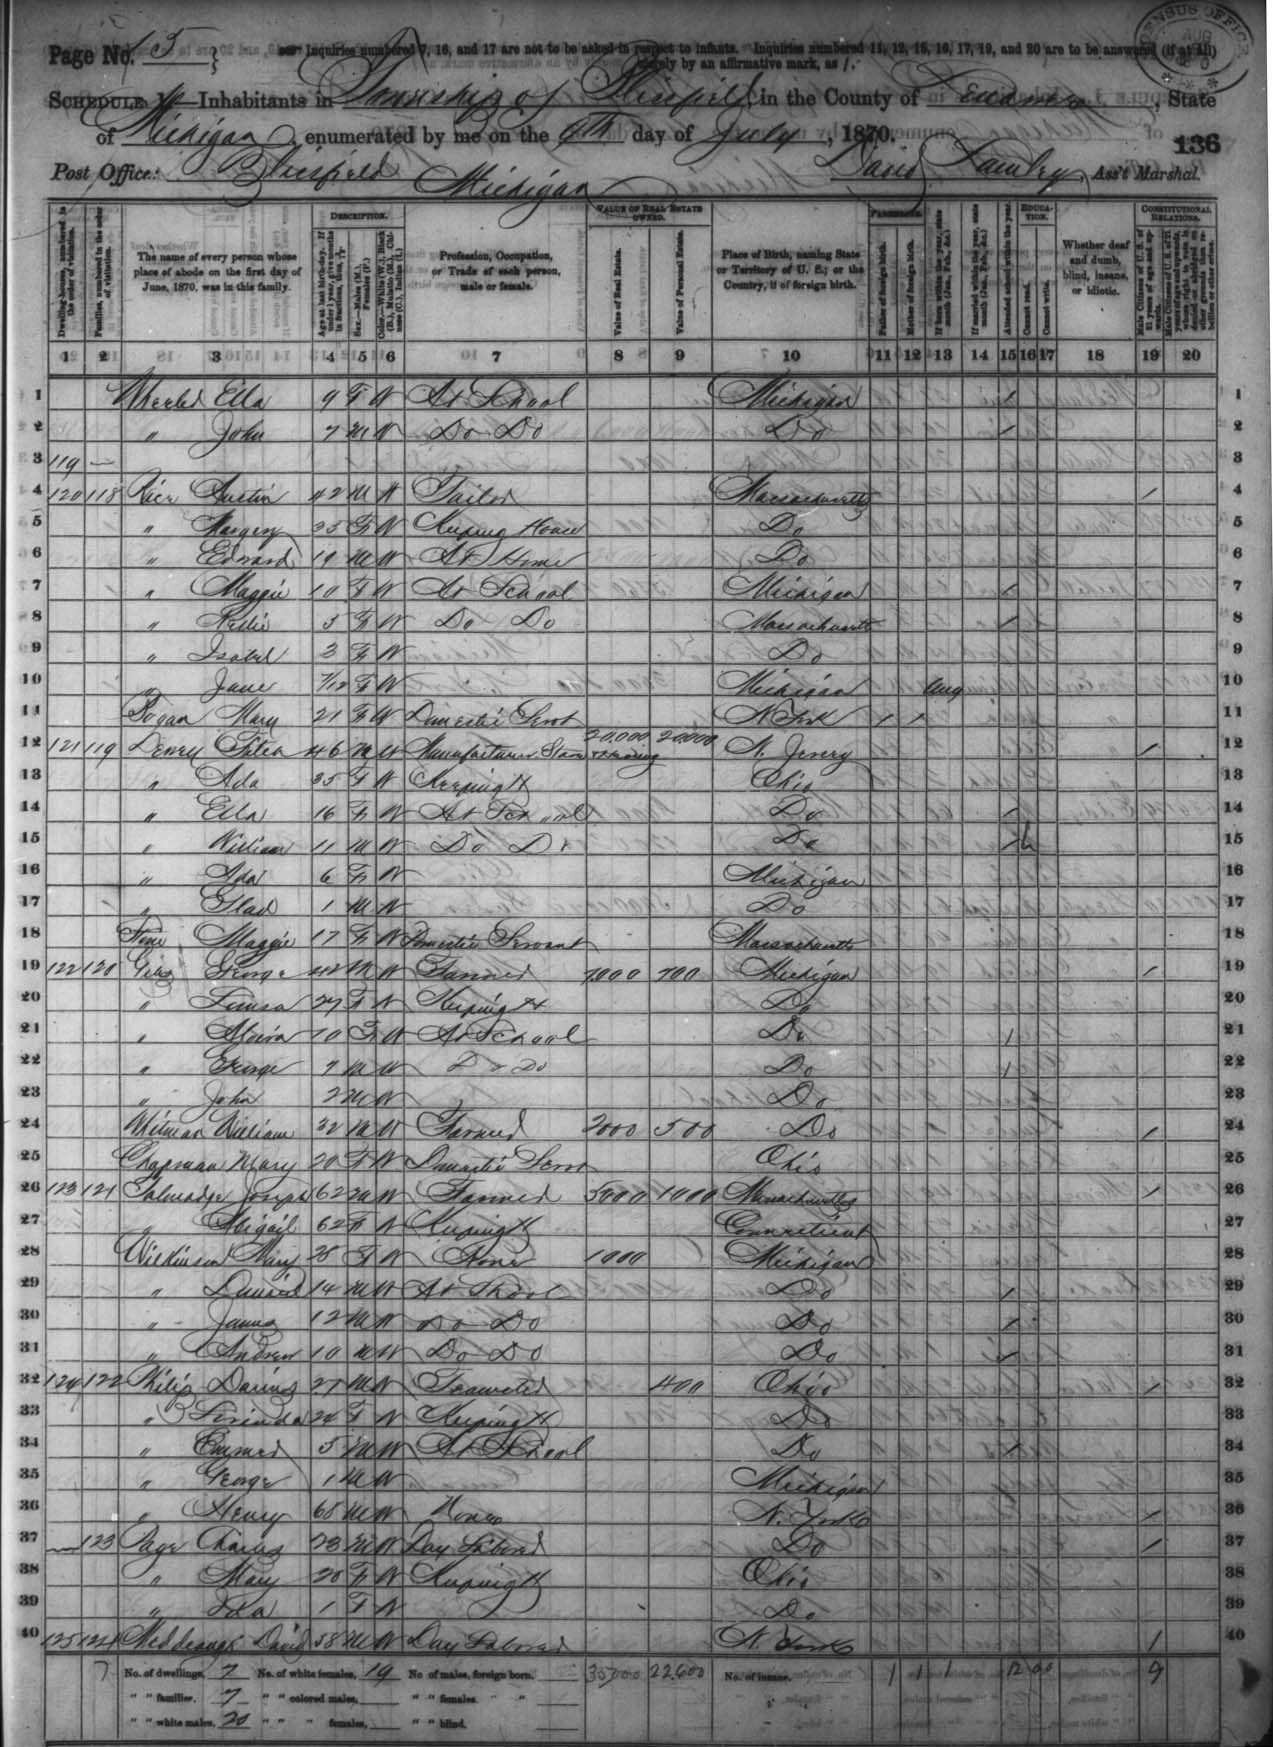 Page No. 15
Inquiries numbered 7, 16, and 17 are not to be asked in respect to infants. Inquiries numbered 11, 12, 15, 16, 17, 19, and 20 are to be answered (if at all)
merely by an affirmative mark, as /.
CENSUS OFFICE AUG
SCHEDULE 1.—Inhabitants in Township of Blissfield, in the County of Lenawee, State
of Michigan, enumerated by me on the 6th day of July, 1870.
136
Post Office: Blissfield Michigan David Ass't Marshal.
DESCRIPTION. VALUE OF REAL ESTATE OWNED. PARENTAGE. EDUCATION. CONSTITUTIONAL RELATIONS.
Dwelling-houses, numbered in the order of visitation.
Families, numbered in the order of visitation.
The name of every person whose place of abode on the first day of June, 1870, was in this family.
Age at last birth-day. If under 1 year, give months in fractions, thus, 3/12
Sex.—Males (M.), Females (F.)
Color.—White (W.), Black (B.), Mulatto (M.), Chinese (C.), Indian (I.)
Profession, Occupation, or Trade of each person, male or female.
Value of Real Estate.
Value of Personal Estate.
Place of Birth, naming State or Territory of U. S.; or the Country, if of foreign birth.
Father of foreign birth.
Mother of foreign birth.
If born within the year, state month (Jan., Feb., &c.)
If married within the year, state month (Jan., Feb., &c.)
Attended school within the year.
Cannot read.
Cannot write.
Whether deaf and dumb, blind, insane, or idiotic.
Male Citizens of U. S. of 21 years of age and upwards.
Male Citizens of U. S. of 21 years of age and upwards, whose right to vote is denied or abridged on other grounds than rebellion or other crime.
1 2 3 4 5 6 7 8 9 10 11 12 13 14 15 16 17 18 19 20
1 Ella 9 F W At School Michigan / 1
2 " John 7 M W Do Do Do / 2
3 119 — 3
4 120 118 Rice Austin 42 M W Tailor Massachusetts / 4
5 " Margery 35 F W Keeping House Do 5
6 " Edward 19 M W At Home Do 6
7 " Maggie 10 F W At School Michigan / 7
8 " Nellie 5 F W Do Do Massachusetts / 8
9 " Isabel 3 F W Do 9
10 " Jane F W Michigan Aug 10
11 Mary 21 F W Domestic Servt N York / / 11
12 121 119 46 M W Manufacturer 20,000 20,000 N. Jersey / 12
13 " Ada 35 F W Keeping H Ohio 13
14 " Ella 16 F W At School Do / 14
15 " William 11 M W Do Do Do / 15
16 " Ada 6 F W Michigan 16
17 " 1 M W Do 17
18 Maggie 17 F W Domestic Servant Massachusetts 18
19 122 120 Giles George 42 M W Farmer 7000 700 Michigan / 19
20 " 27 F W Keeping H Do 20
21 " 10 F W At School Do / 21
22 " George 7 M W Do Do Do / 22
23 " John 2 M W Do 23
24 William 32 M W Farmer 2000 500 Do / 24
25 Chapman Mary 20 F W Domestic Servt Ohio 25
26 123 121 Talmadge Joseph 62 M W Farmer 5000 1000 Massachusetts / 26
27 " Abigail 62 F W Keeping H Connecticut 27
28 Wilkinson Mary 38 F W None 1000 Michigan 28
29 " 14 M W At School Do / 29
30 " James 12 M W Do Do Do / 30
31 " Andrew 10 M W Do Do Do / 31
32 124 122 Philip Darius 27 M W 400 Ohio / 32
33 " Lucinda 24 F W Keeping H Do 33
34 " 5 M W At School Do / 34
35 " George 1 M W Michigan 35
36 " Henry 68 M W None N. York / 36
37 — 123 Page Charles 23 M W Day Laborer Do / 37
38 " Mary 20 F W Keeping H Ohio 38
39 " Ida 1 F W Do 39
40 125 124 Meddaugh David 58 M W Day Laborer N. York / 40
7 No. of dwellings, 7 No. of white females, 19 No. of males, foreign born, 35000 22,600 No. of insane. 1 1 1 12 9
" " families. 7 " " colored males, " " females, " "
" " white males, 20 " " " females, " " blind.